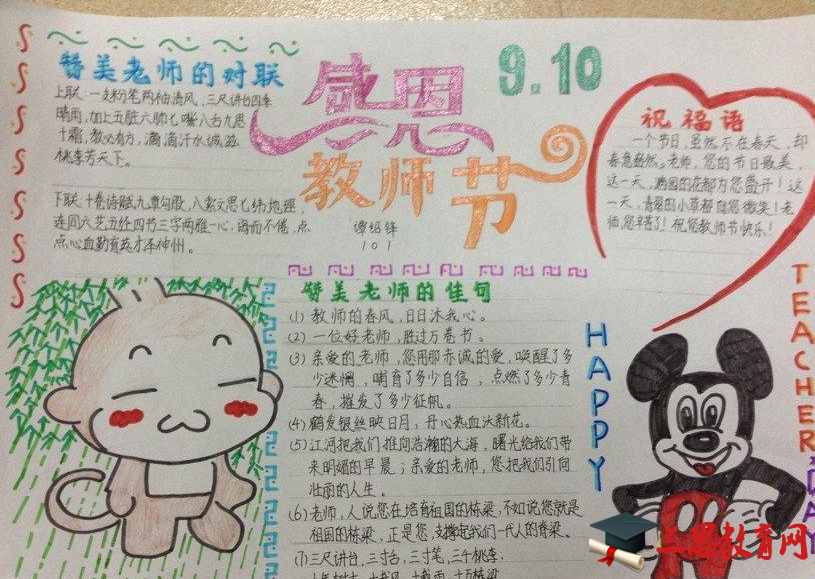 赞美老师的对联
上联:一支粉笔两袖清风,三尺讲台四季
晴雨,加上五脏六腑七嘴八舌九思
十霜,教必有方,滴滴汗水诚滋
桃李芳天下。
下联:十卷诗赋九章勾股,八索文思七纬地理,
连同六艺五经四书三字两雅一心,诲而不倦,点
点心血勤育英才泽神州。
感恩
教师节
9.10
谭绍锋
101
祝福语
一个节日,虽然不在春天,却
春意盎然。老师,您的节日最美,
这一天,满园的花都为您盛开!这
一天,青翠的小草都向您微笑!老
师,您辛苦了!祝您教师节快乐!
赞美老师的佳句
(1)教师的春风,日日沐我心。
(2)一位好老师,胜过万卷书。
(3)亲爱的老师,您用那赤诚的爱,唤醒了多
少迷惘,哺育了多少自信,点燃了多少青
春,摧发了多少征帆。
(4)鹤发银丝映日月,丹心热血沃新花。
(5)江河把我们推向浩瀚的大海,曙光给我们带
来明媚的早晨;亲爱的老师,您把我们引向
壮丽的人生。
(6)老师,人说您在培育祖国的栋梁,不如说您就是
祖国的栋梁,正是您,支撑起我们一代人的脊梁。
(7)三尺讲台,三寸舌,三寸笔,三千桃李;
HAPPY
TEACHER'S DAY
教育网